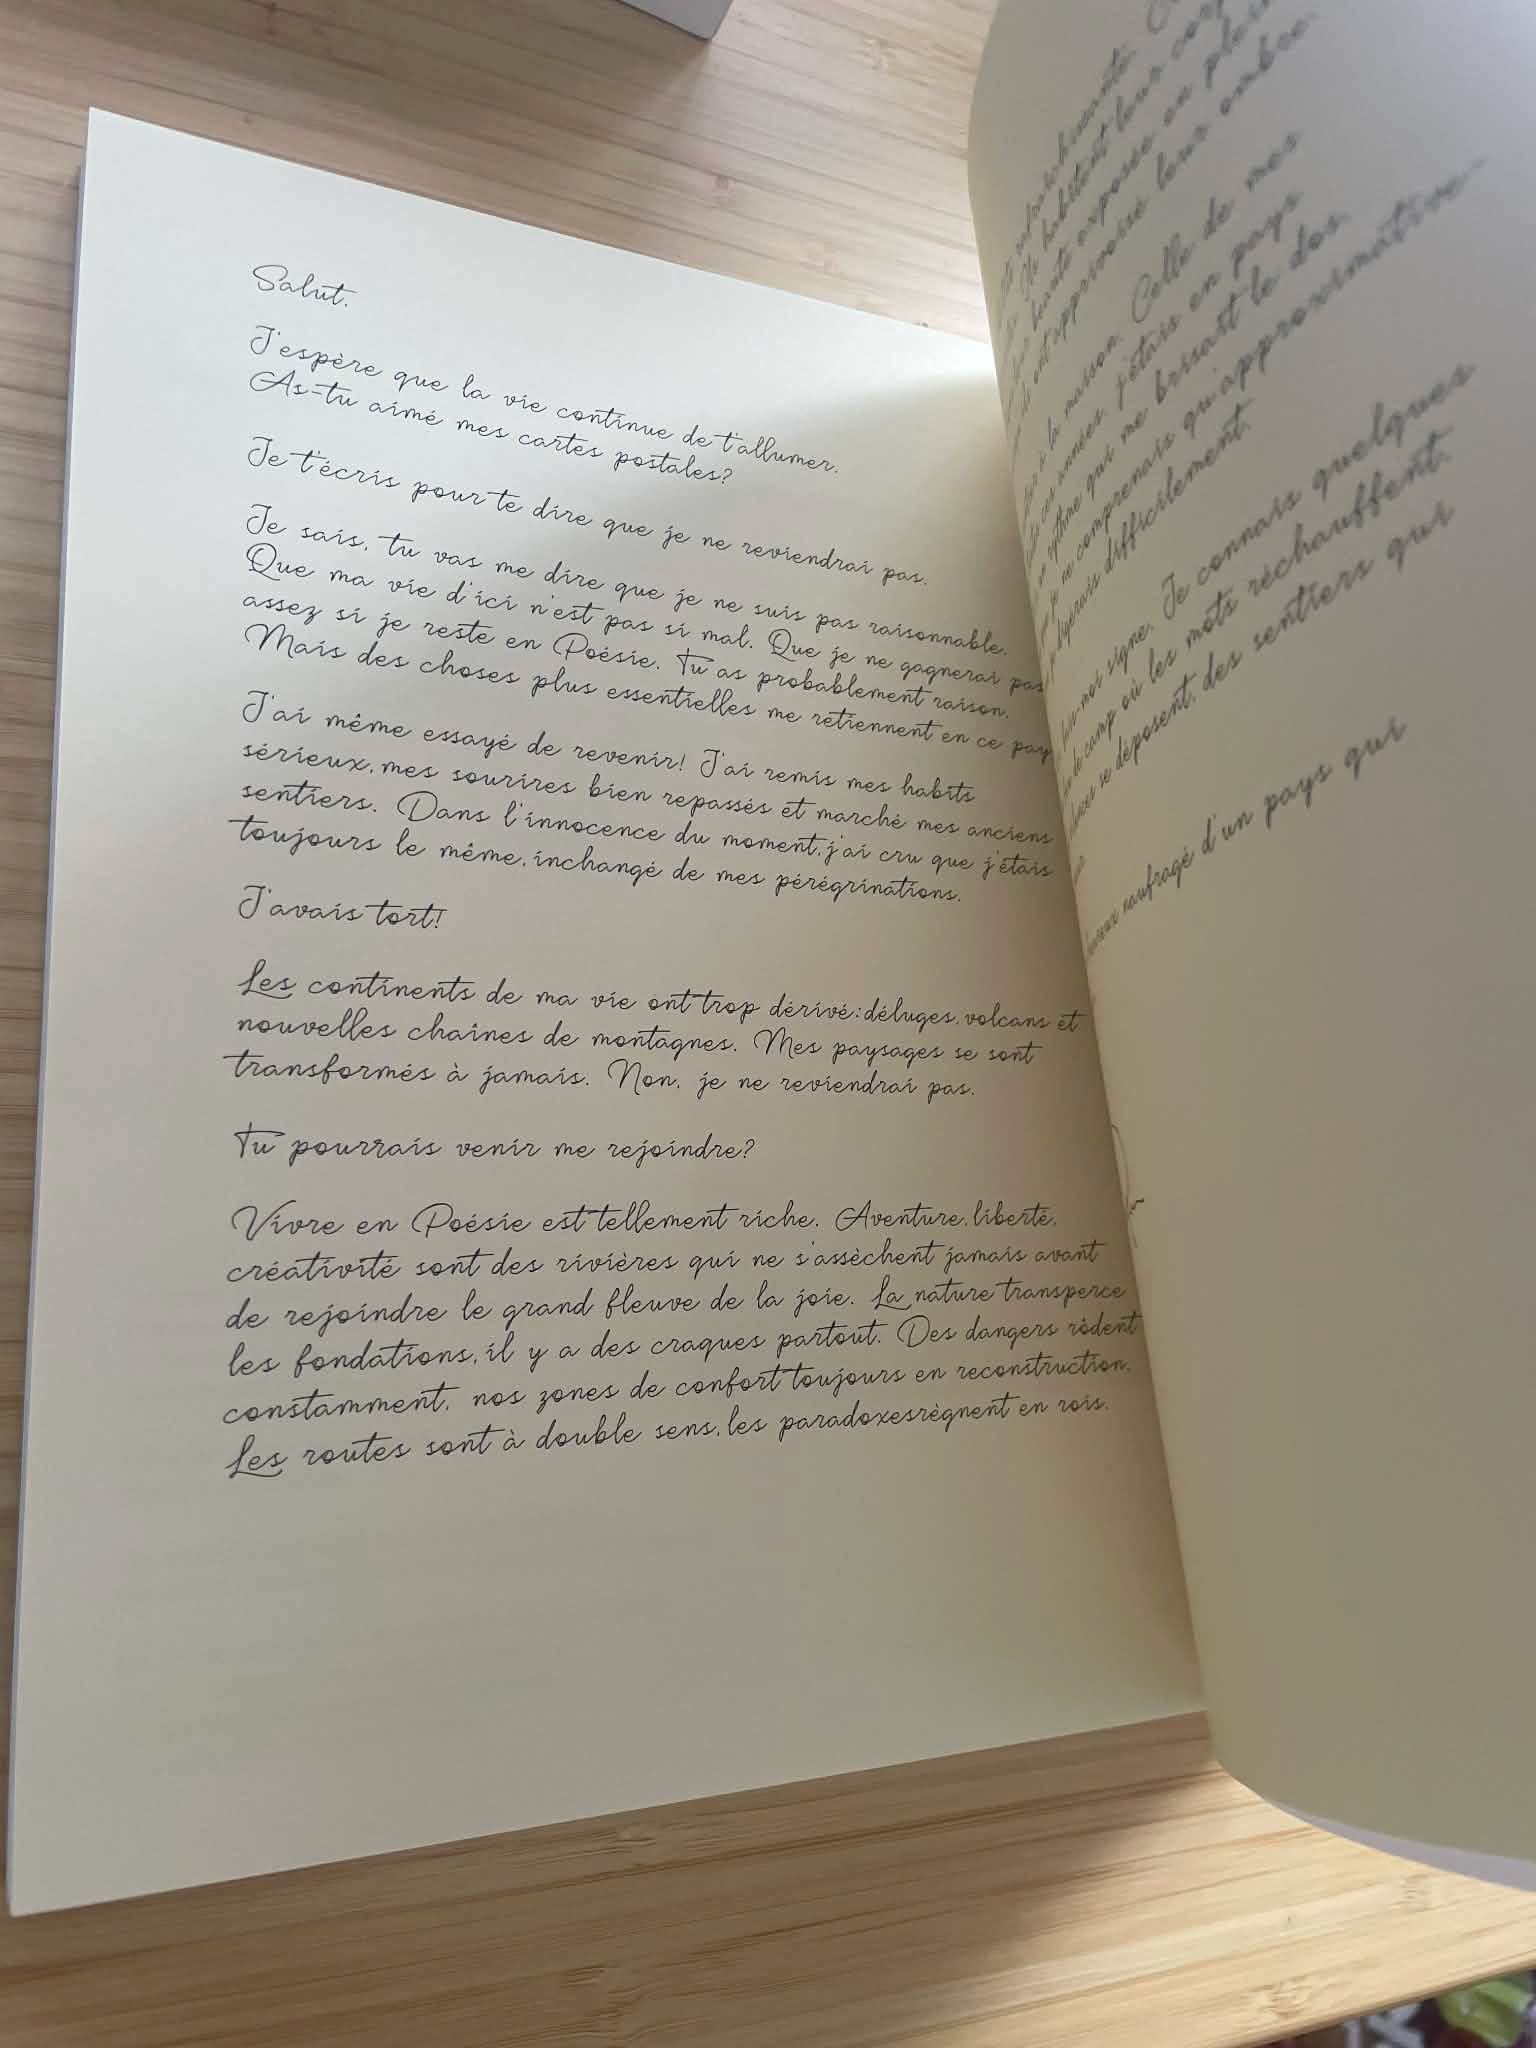 Salut,
J'espère que la vie continue de t'allumer.
As-tu aimé mes cartes postales?
Je t'écris pour te dire que je ne reviendrai pas.
Je sais, tu vas me dire que je ne suis pas raisonnable.
Que ma vie d'ici n'est pas si mal. Que je ne gagnerai pas
assez si je reste en Poésie. Tu as probablement raison.
Mais des choses plus essentielles me retiennent en ce pay
J'ai même essayé de revenir! J'ai remis mes habits
sérieux, mes sourires bien repassés et marché mes anciens
sentiers. Dans l'innocence du moment, j'ai cru que j'étais
toujours le même, inchangé de mes pérégrinations.
J'avais tort!
Les continents de ma vie ont trop dérivé: déluges, volcans et
nouvelles chaînes de montagnes. Mes paysages se sont
transformés à jamais. Non, je ne reviendrai pas.
Tu pourrais venir me rejoindre?
Vivre en Poésie est tellement riche. Aventure, liberté,
créativité sont des rivières qui ne s'assèchent jamais avant
de rejoindre le grand fleuve de la joie. La nature transperce
les fondations, il y a des craques partout. Des dangers rôdent
constamment, nos zones de confort toujours en reconstruction.
Les routes sont à double sens, les paradoxes règnent en rois.
habitent leur corp
beauté exposée en plein
ont apprivoisé leur ombre.
à la maison. Celle de mes
ces années, j'étais en pays
rythme qui me brisait le dos.
je ne comprenais qu'approximative-
digérais difficilement.
fais-moi signe. Je connais quelques
de camp où les mots réchauffent,
se déposent, des sentiers qui
naufragé d'un pays qui